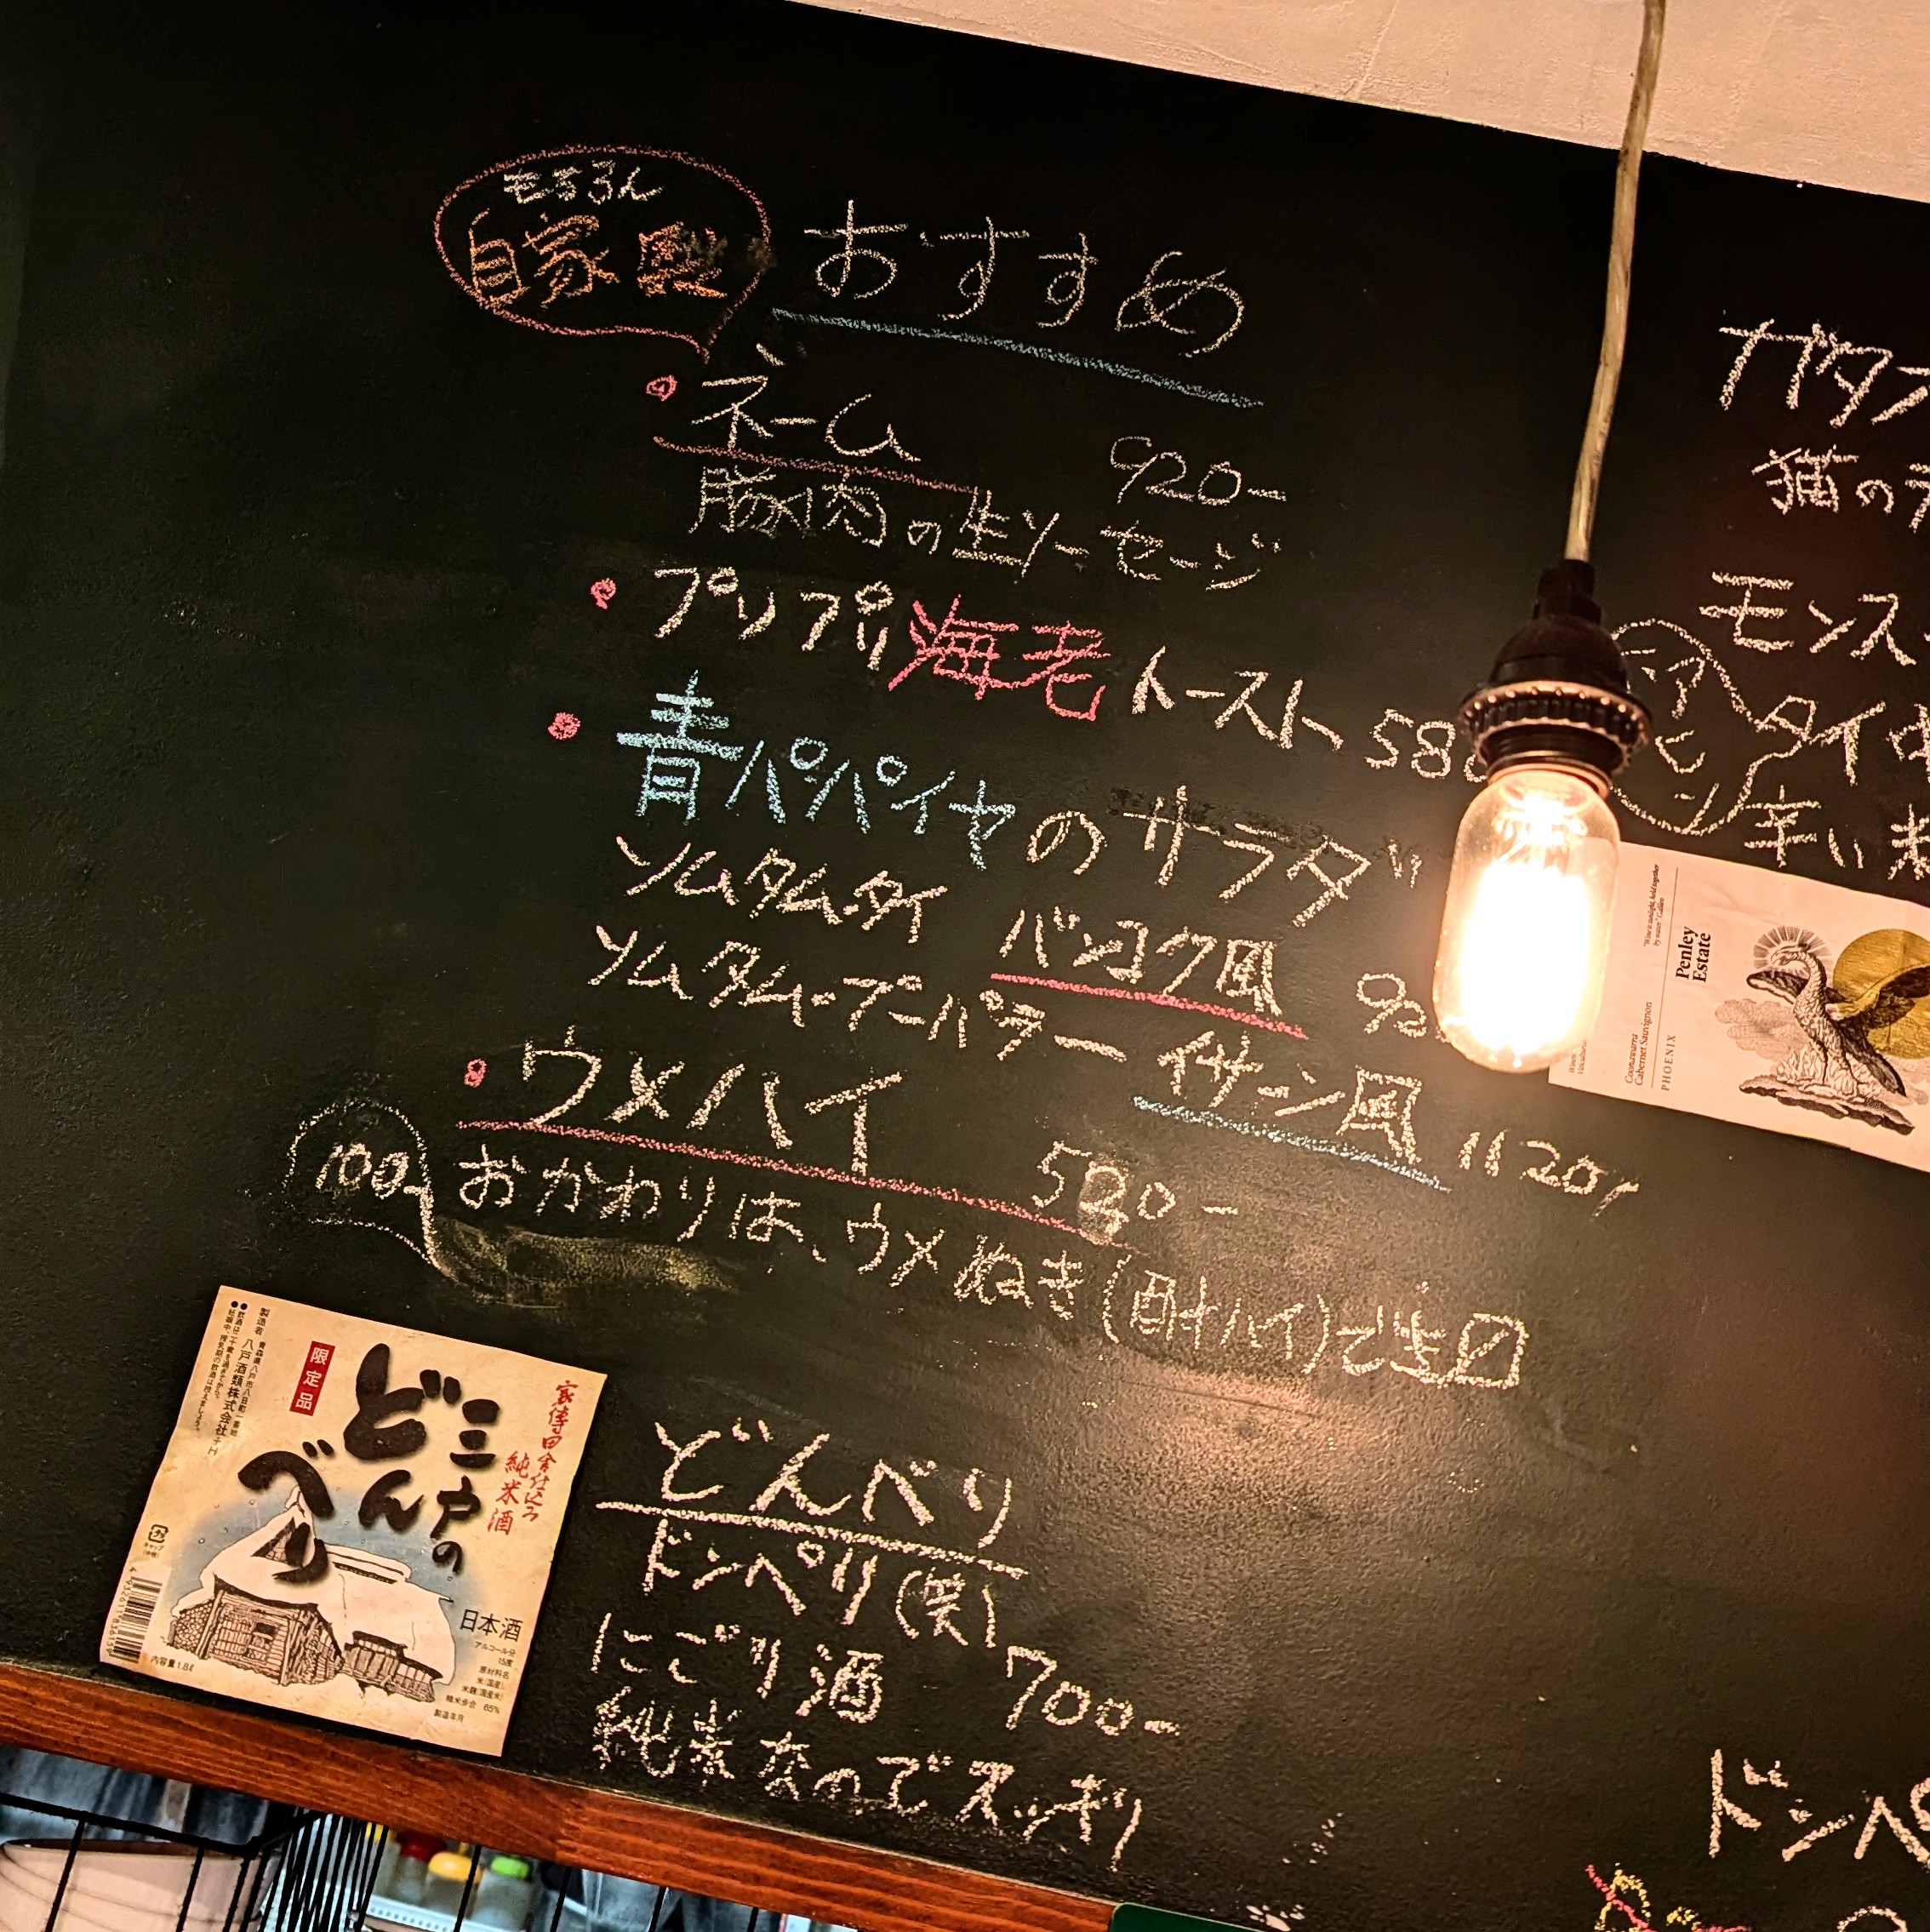 もちろん
自家製
おすすめ
・ネーム 920-
豚肉の生ソーセージ
・プリプリ海老トースト 58
・青パパイヤのサラダ
ソムタム・タイ バンコク風 9
ソムタム・プーパラー イサーン風 1120-
・ウメハイ 520-
100-
おかわりは、ウメぬき(酎ハイ)で
どんべり
ドンペリ(笑)
にごり酒 700-
純米なのでスッキリ
家傳田舎仕込み
純米酒
三戸の
どん
べり
限定品
製造者 青森県八戸市八日町一番地
八戸酒類株式会社
日本酒
アルコール分
15度
原材料名
米(国産)、
米麹(国産米)
精米歩合 65%
製造年月
内容量1.8ℓ
ガタ
猫の
モンス
タイ
辛い
Penley
Estate
"Wine is sunlight, held together
by water." Galileo
Coonawarra
Cabernet Sauvignon
PHOENIX
ドンペ